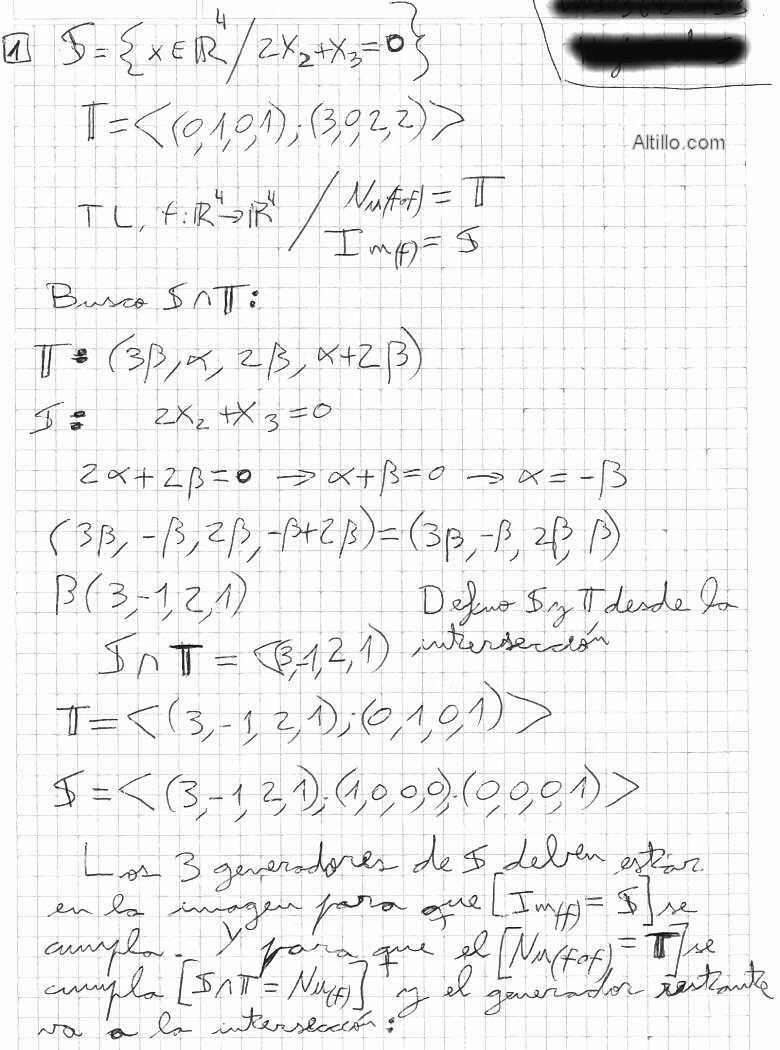 1 S = {x ∈ R⁴ / 2x₂+x₃=0}
T = <(0,1,0,1);(3,0,2,2)>
Altillo.com
TL, f:R⁴→R⁴ / Nu(fof) = T
Im(f) = S
Busco S∩T:
T: (3β, α, 2β, α+2β)
S: 2x₂+x₃=0
2α+2β=0 → α+β=0 → α=-β
(3β, -β, 2β, -β+2β)=(3β, -β, 2β, β)
β(3,-1,2,1)
Defino S y T desde la
intersección
S∩T = <(3,-1,2,1)
T=<(3,-1,2,1);(0,1,0,1)>
S=<(3,-1,2,1);(1,0,0,0);(0,0,0,1)>
Los 3 generadores de S deben estar
en la imagen para que [Im(f)=S] se
cumpla. Y para que el [Nu(fof)=T] se
cumpla [S∩T=Nu(f)] y el generador restante
va a la intersección: